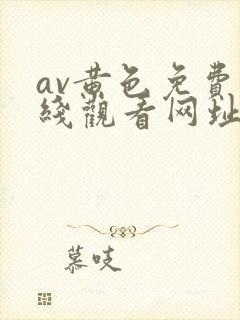 av黄色免費
綫觀看网址
慕吱